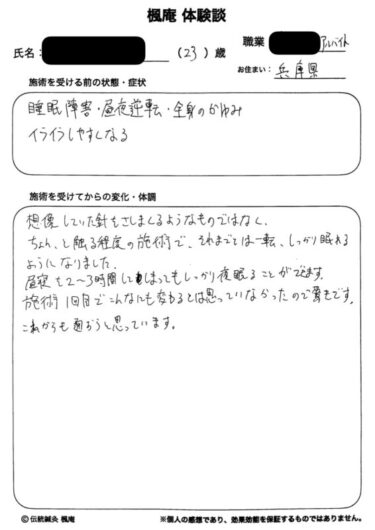 楓庵 体験談
氏名: （23）歳
職業 アルバイト
お住まい: 兵庫県
施術を受ける前の状態・症状
睡眠障害・昼夜逆転・全身のかゆみ
イライラしやすくなる
施術を受けてからの変化・体調
想像していた針をさしまくるようなものではなく、
ちょん、と触る程度の施術で、それまでとは一転、しっかり眠れる
ようになりました。
昼寝を2〜3時間してしまってもしっかり夜眠ることができます。
施術1回目でこんなにも変わるとは思っていなかったので驚きです。
これからも通おうと思っています。
©伝統鍼灸 楓庵
※個人の感想であり、効果効能を保証するものではありません。